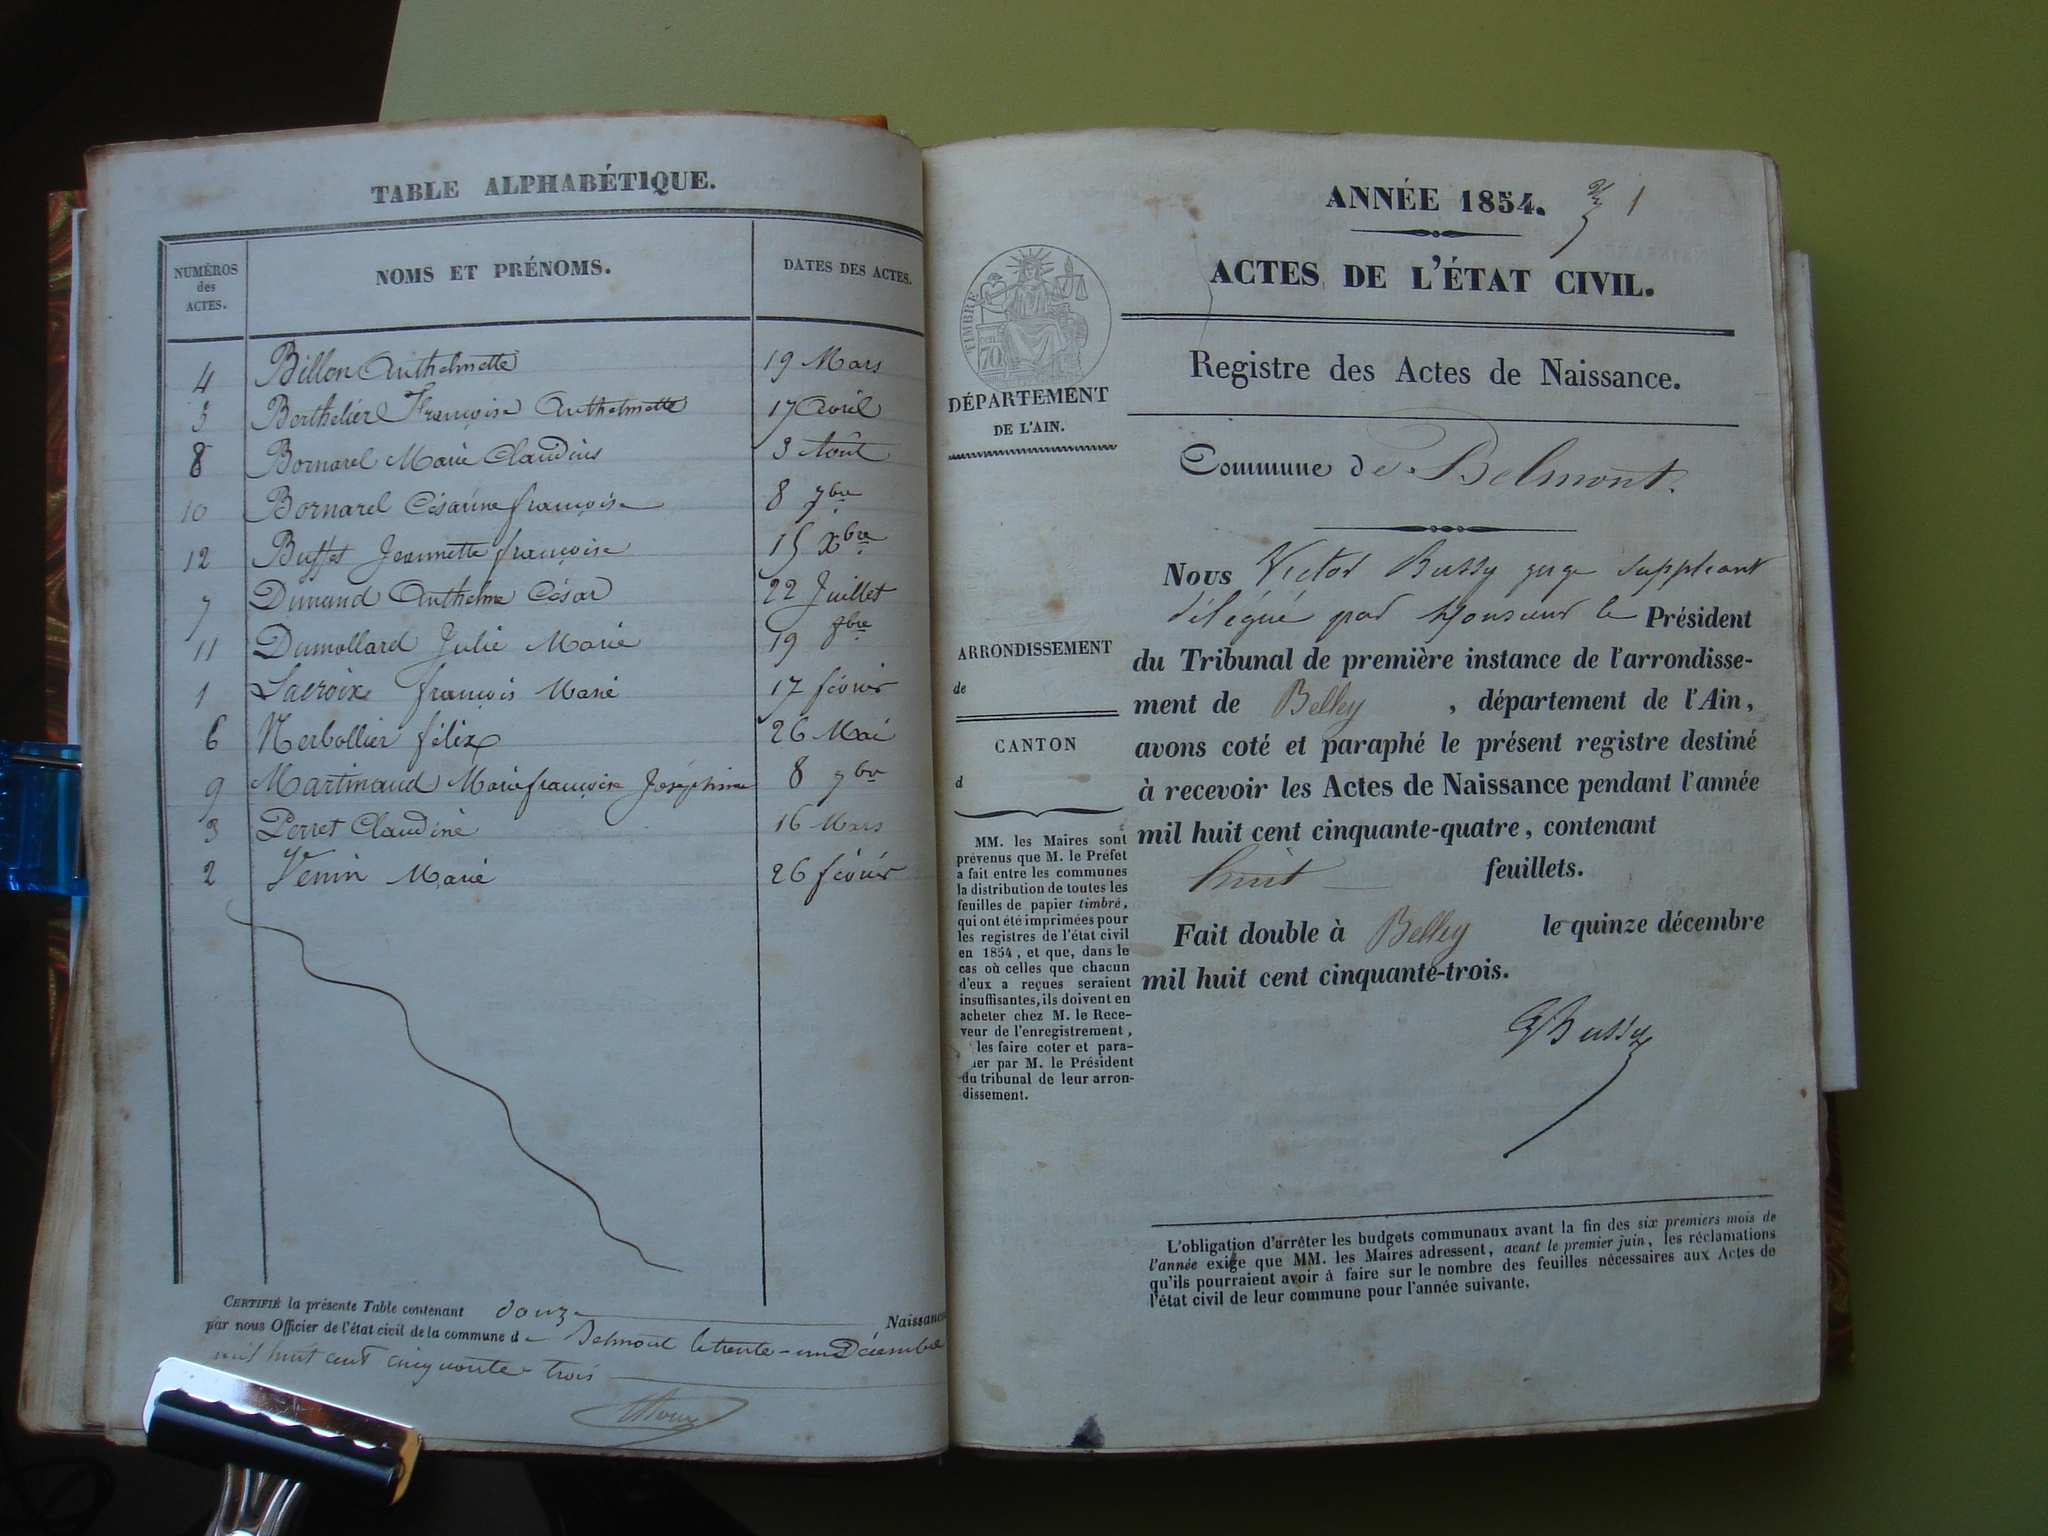 TABLE ALPHABÉTIQUE.
NUMÉROS des ACTES.
NOMS ET PRÉNOMS.
DATES DES ACTES.
4 Billon Anthelmette 19 Mars
5 Berthelier Françoise Anthelmette 17 Avril
8 Bornarel Marie Claudius 3 Août
10 Bornarel Césarine françoise 8 7bre
12 Buffet Jeannette françoise 15 Xbre
7 Dunand Anthelme César 22 Juillet
11 Dumollard Julie Marie 19 8bre
1 Lacroix françois Marie 17 février
6 Merbollier félix 26 Mai
9 Martinaud Marie françoise Joséphine 8 7bre
3 Perret Claudine 16 Mars
2 Venin Marie 26 février
CERTIFIÉ la présente Table contenant douze Naissances
par nous Officier de l'état civil de la commune de Belmont le trente-un Décembre
mil huit cent cinquante-trois
ANNÉE 1854. 1
ACTES DE L'ÉTAT CIVIL.
TIMBRE
70
DÉPARTEMENT
DE L'AIN.
Registre des Actes de Naissance.
Commune de Belmont.
Nous Victor Bussy juge suppléant
délégué par Monsieur le Président
du Tribunal de première instance de l'arrondisse-
ment de Belley, département de l'Ain,
avons coté et paraphé le présent registre destiné
à recevoir les Actes de Naissance pendant l'année
mil huit cent cinquante-quatre, contenant
huit feuillets.
Fait double à Belley le quinze décembre
mil huit cent cinquante-trois.
Bussy
ARRONDISSEMENT
de
CANTON
d
MM. les Maires sont
prévenus que M. le Préfet
a fait entre les communes
la distribution de toutes les
feuilles de papier timbré,
qui ont été imprimées pour
les registres de l'état civil
en 1854, et que, dans le
cas où celles que chacun
d'eux a reçues seraient
insuffisantes, ils doivent en
acheter chez M. le Rece-
veur de l'enregistrement,
les faire coter et para-
her par M. le Président
du tribunal de leur arron-
dissement.
L'obligation d'arrêter les budgets communaux avant la fin des six premiers mois de
l'année exige que MM. les Maires adressent, avant le premier juin, les réclamations
qu'ils pourraient avoir à faire sur le nombre des feuilles nécessaires aux Actes de
l'état civil de leur commune pour l'année suivante.